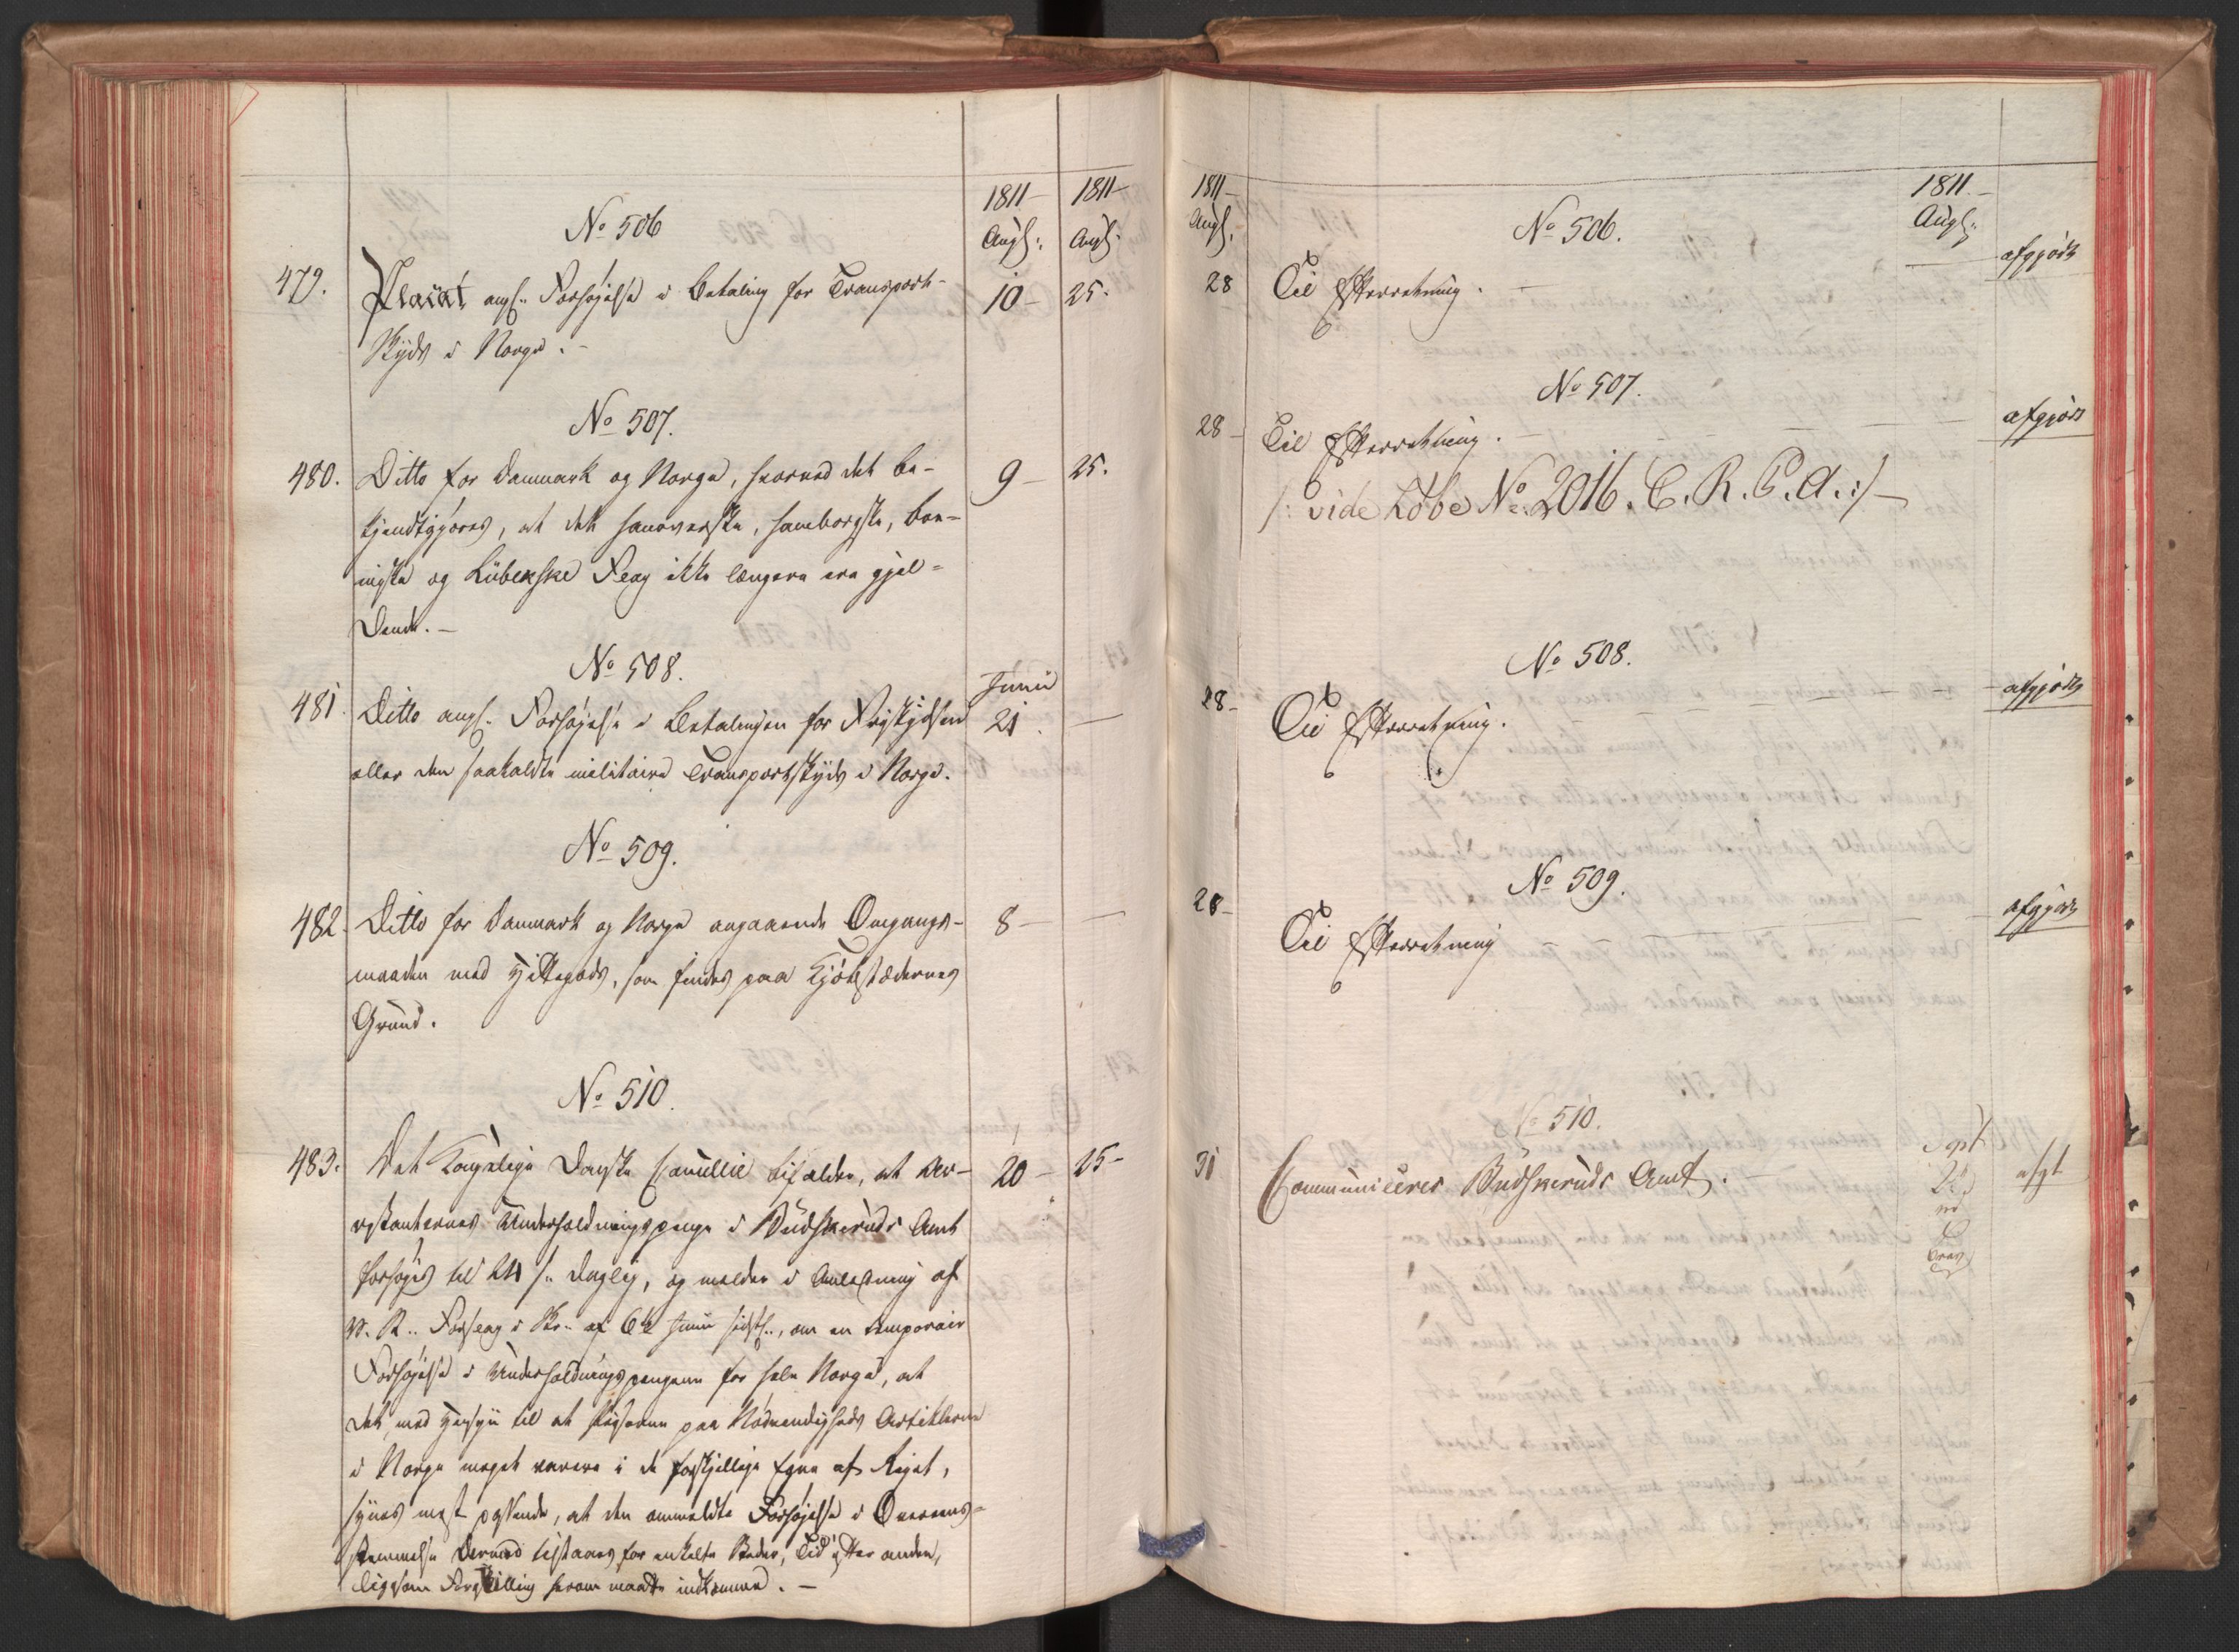 1811 1811
Augs: Augs:
No 506
479. Placat angs. Forhøjelse i Betaling for Transport- 10- 25.
Skyds i Norge.-
No 507.
480. Ditto for Danmark og Norge, hvorved det be- 9- 25.
kjendtgjøres, at det hanoverske, hamborgske, bre-
mske og Lübekske Flag ikke længere ere gjel-
dende.-
No 508.
Junii
481. Ditto angs. Forhøjelse i Betalingen for Friskydsen 21. -
eller den saakaldte militaire Transportskyds i Norge.
No 509.
482. Ditto for Danmark og Norge angaaende Omgangs- 8- -
maaden med Hittegods, som findes paa Kjøbstædernes
Grund.
No 510.
483. Det Kongelige Danske Cancellie bifalder, at Ar- 20- 25-
restanternes Underholdningspenge i Budskeruds Amt
forhøjes til 24 s. daglig, og melder i Anledning af
V. R. Forslag i Skr. af 6te Junii sidstl., om en temporair
Forhøjelse i Underholdningspengene for hele Norge, at
det, med Hensyn til at Priserne paa Nødvendigheds Artiklerne
i Norge meget variere i de forskjellige Egne af Riget,
synes mest passende, at den ommeldte Forhøjelse i Overens-
stemmelse dermed tilstaaes for enkelte Steder, Tid efter anden,
ligesom Forestilling herom maatte indkomme.-
1811- 1811-
Augs. Augs:
No 506.
28 Til Efterretning.- afgjort
No 507.
28- Til Efterretning.- afgjort
/: vide Løbe No 2016. C. R. P. A.:/-
No 508.
28- Til Efterretning. afgjort
No 509.
28- Til Efterretning afgjort
No 510.
31 Communiceres Budskeruds Amt.- Sept. afgt